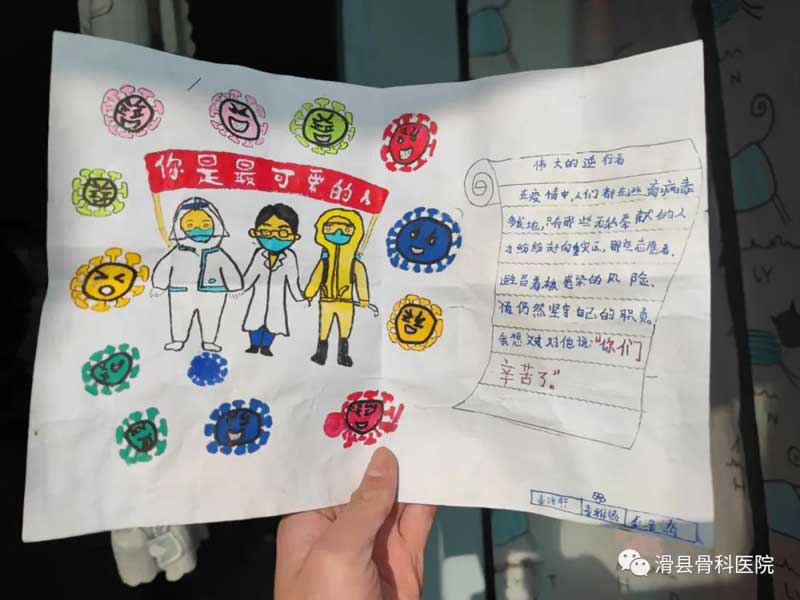 你是最可爱的人
伟大的逆行者
在疫情中,人们都在远离病毒
多地,只有那些无私奉献的人
才纷纷走向重灾区,那些志愿者,
避着被感染的风险,
但仍然坚守自己的职责,
我想对对他说:"你们
辛苦了。"
滑县骨科医院